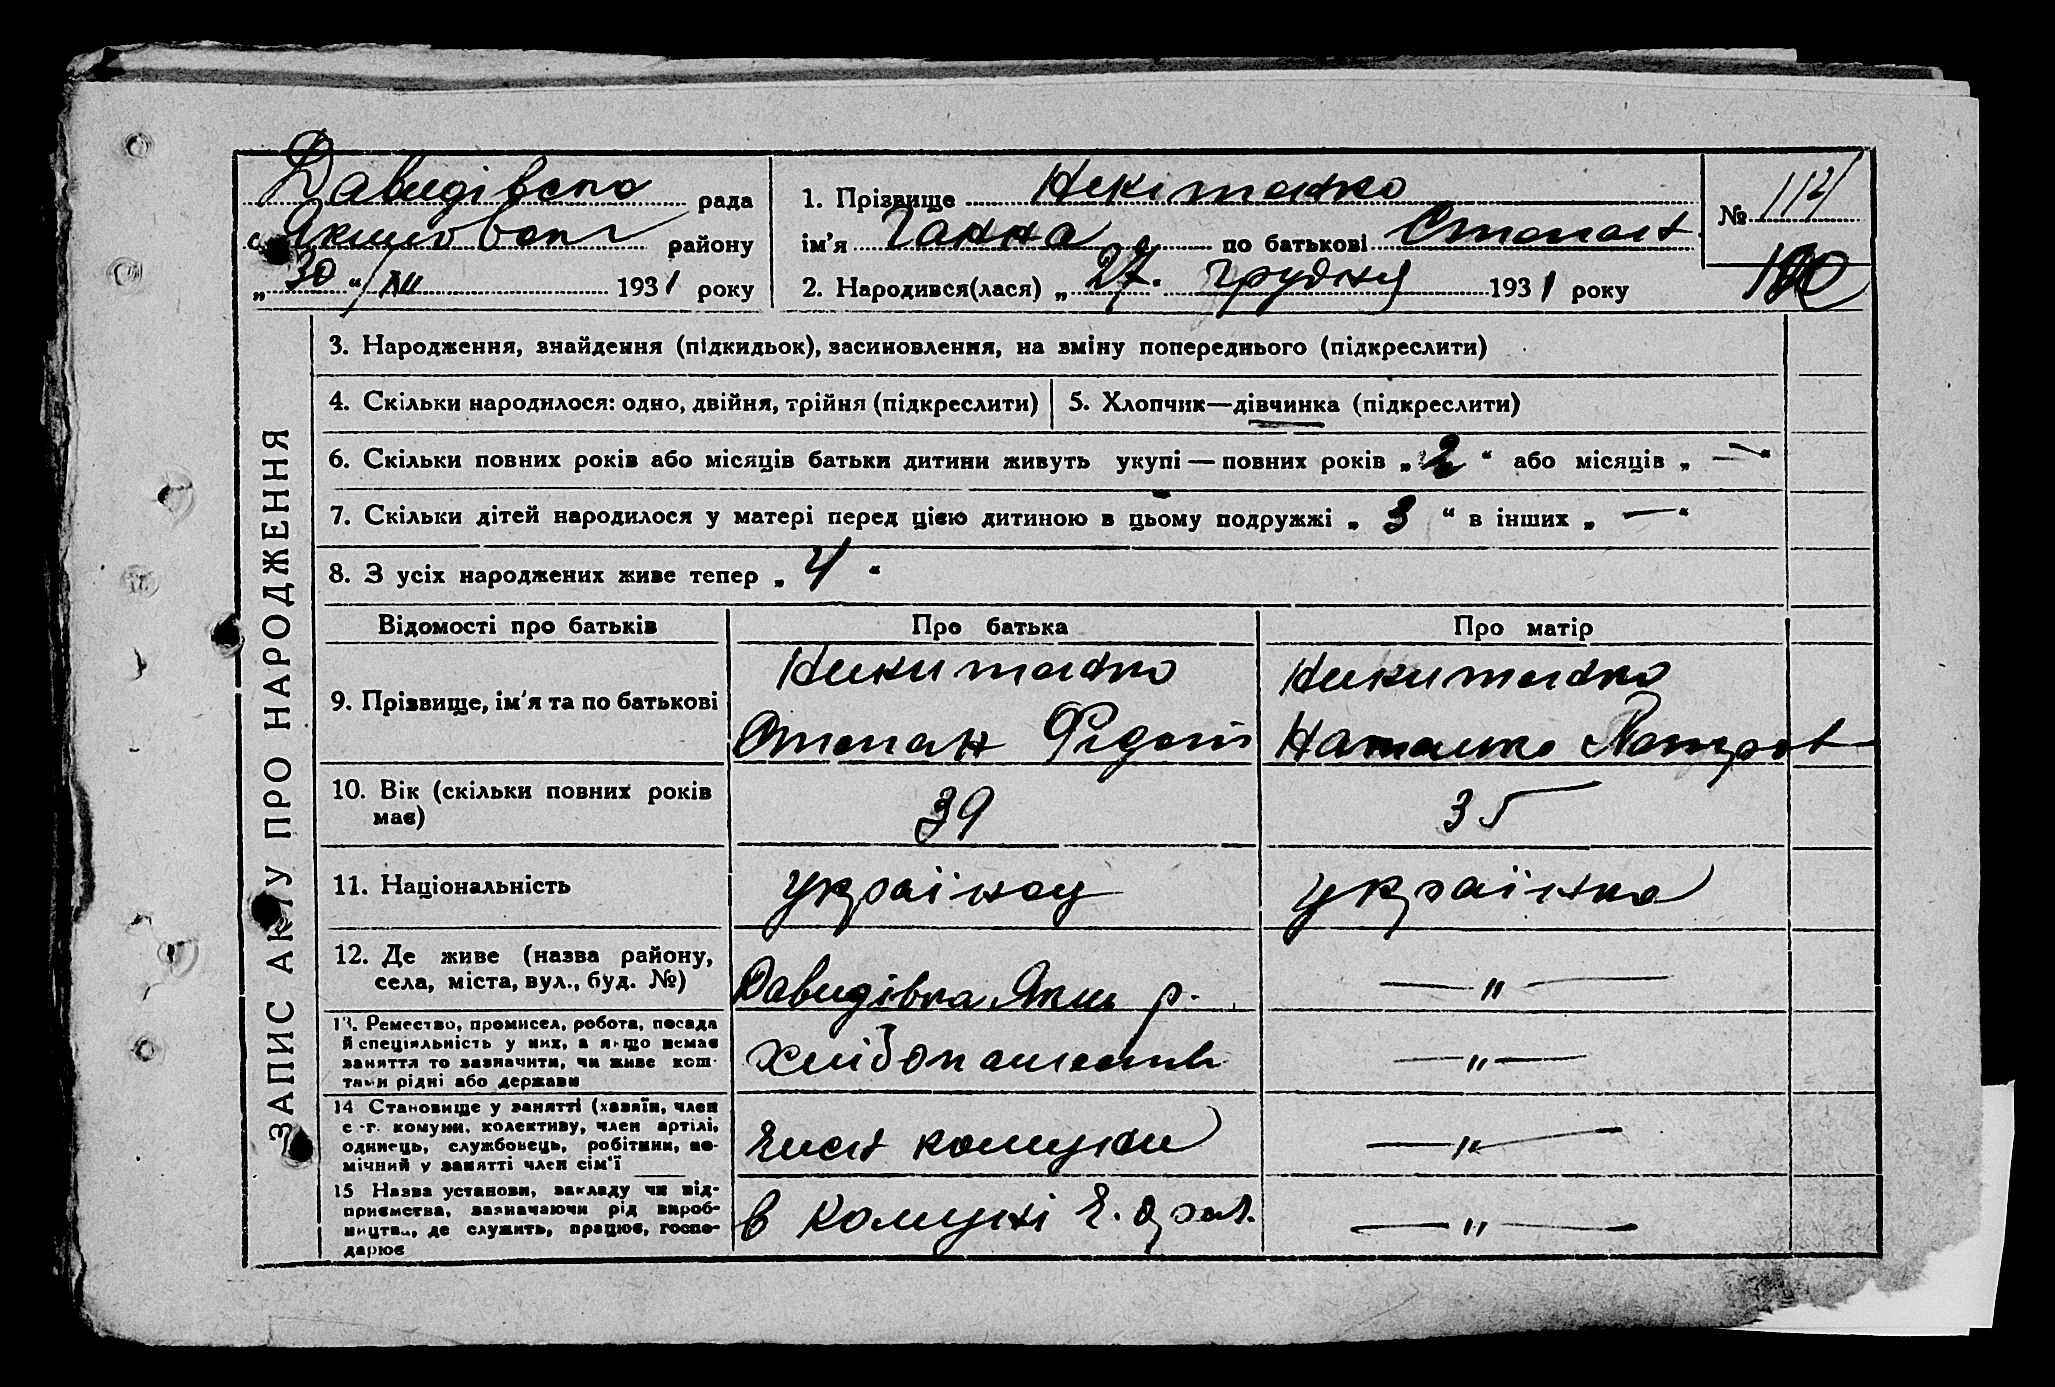 Давидівсна рада
Якимовсьн району
„30“ XII 1931 року
1. Прізвище Некітенко
ім'я Ганна по батькові Степан
№ 114
2. Народився(лася) „27. грудня 1931 року
190
ЗАПИС АКТУ ПРО НАРОДЖЕННЯ
3. Народження, знайдення (підкидьок), засиновлення, на зміну попереднього (підкреслити)
4. Скільки народилося: одно, двійня, трійня (підкреслити) 5. Хлопчик—дівчинка (підкреслити)
6. Скільки повних років або місяців батьки дитини живуть укупі — повних років „2“ або місяців „—“
7. Скільки дітей народилося у матері перед цією дитиною в цьому подружжі „3“ в інших „—“
8. З усіх народжених живе тепер „4“
Відомості про батьків Про батька Про матір
9. Прізвище, ім'я та по батькові
Никитенко
Степан Федот
Никитенко
Наталка Петров
10. Вік (скільки повних років має) 39 35
11. Національність українец українка
12. Де живе (назва району, села, міста, вул., буд. №)
Давидівка Яким р. —„—
13. Ремество, промисел, робота, посада
й спеціяльність у них, а якщо немає
заняття то зазначити, чи живе кош-
тами рідні або держави
хлібопашест —„—
14 Становище у занятті (хазяїн, член
с.-г. комуни, колективу, член артілі,
одинець, службовець, робітник, по-
мічний у занятті член сім'ї
член комуни —„—
15 Назва установи, закладу чи під-
приємства, зазначаючи рід вироб-
ництва, де служить, працює, госпо-
дарює
в комуні —„—